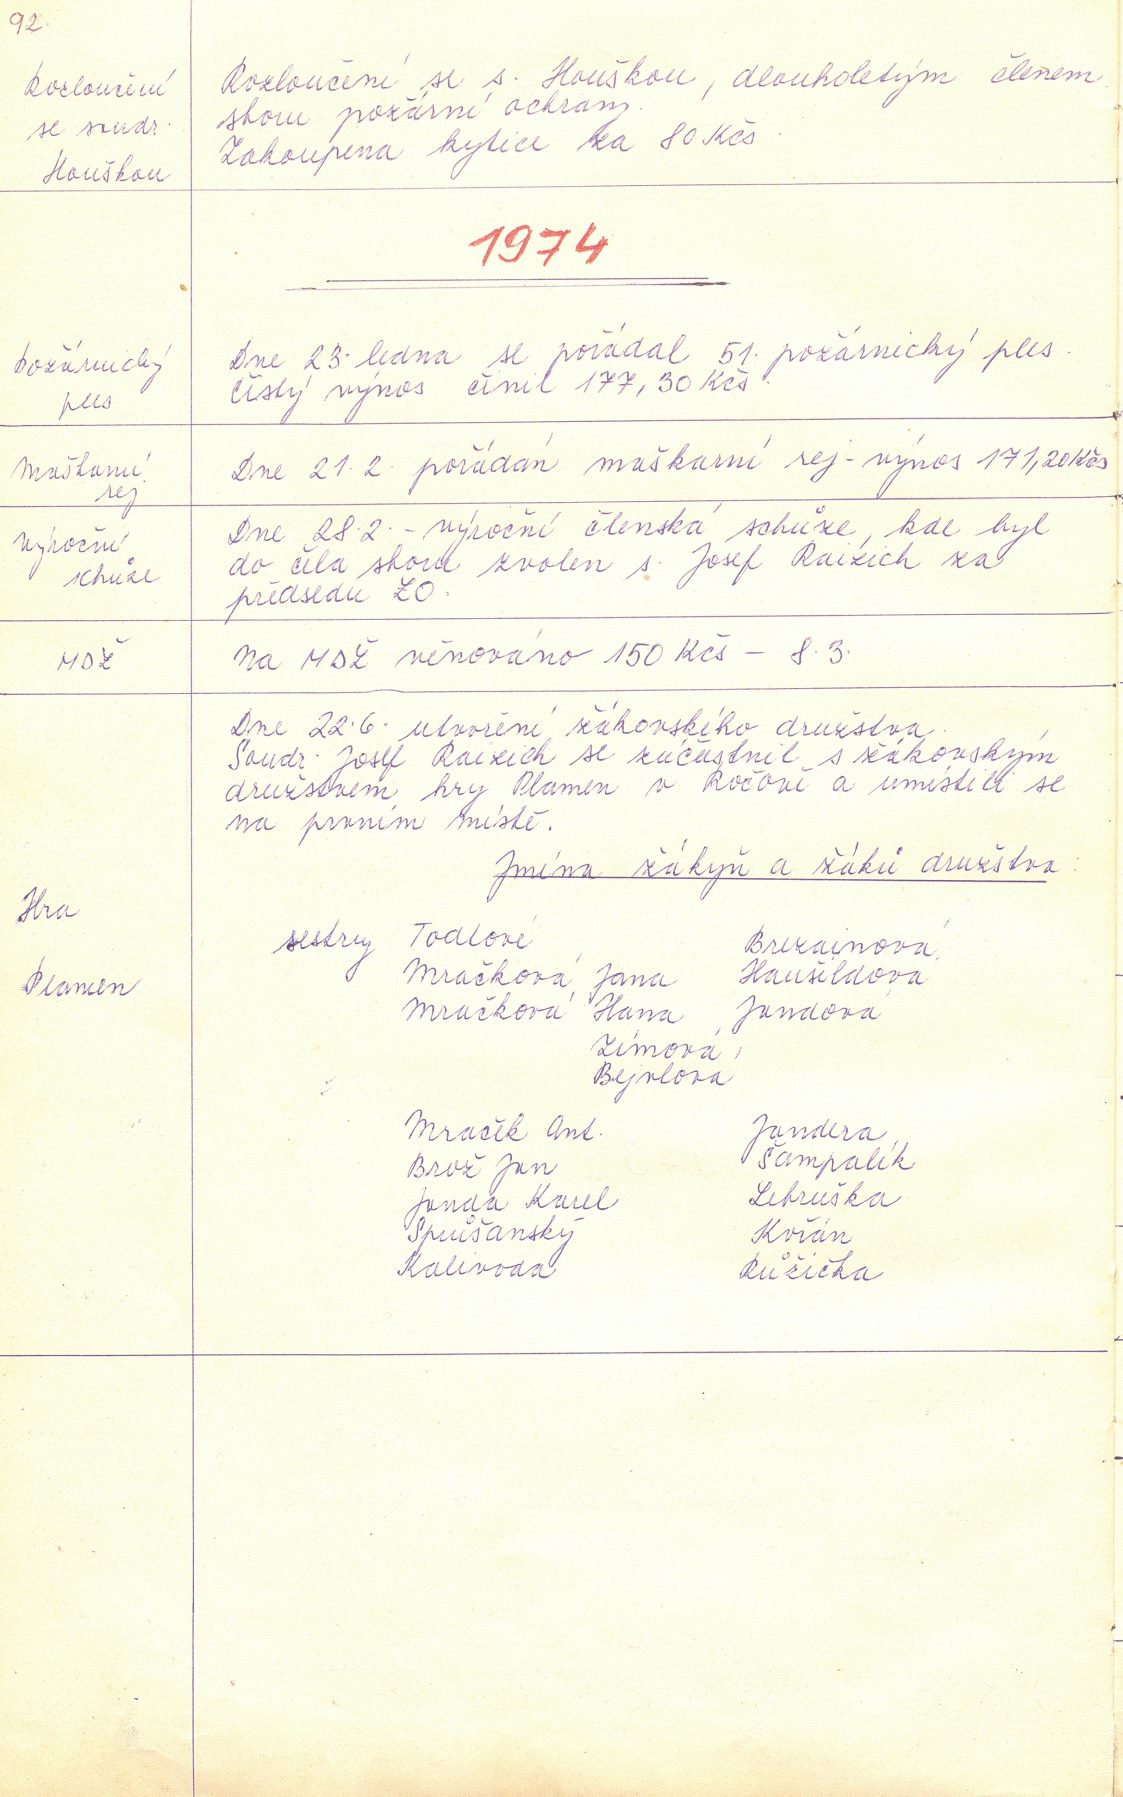 92.
Rozloučení
se soudr.
Houškou
Rozloučení se s. Houškou, dlouholetým členem
sboru požární ochrany.
Zakoupena kytice za 80 Kčs.
1974
Požárnický
ples
Dne 23. ledna se pořádal 51. požárnický ples.
čistý výnos činil 177,30 Kčs.
Maškarní
rej
Dne 21. 2. pořádán maškarní rej - výnos 171,20 Kčs
Výroční
schůze
Dne 28. 2. - výroční členská schůze, kde byl
do čela sboru zvolen s. Josef Raizich za
předsedu ZO.
MDŽ
Na MDŽ věnováno 150 Kčs - 8. 3.
Hra
Plamen
Dne 22. 6. utvoření žákovského družstva.
Soudr. Josef Raizich se zúčastnil s žákovským
družstvem hry Plamen v Ročově a umístili se
na prvním místě.
Jména žákyň a žáků družstva:
sestry Todlové Brezainová
Mračková Jana Haušildová
Mračková Hana Jandová
Zímová
Bejvlová
Mraček Ant. Jandera
Brož Jan Šampalík
Janda Karel Lebruška
Spůšanský Kořán
Kalivoda Růžička